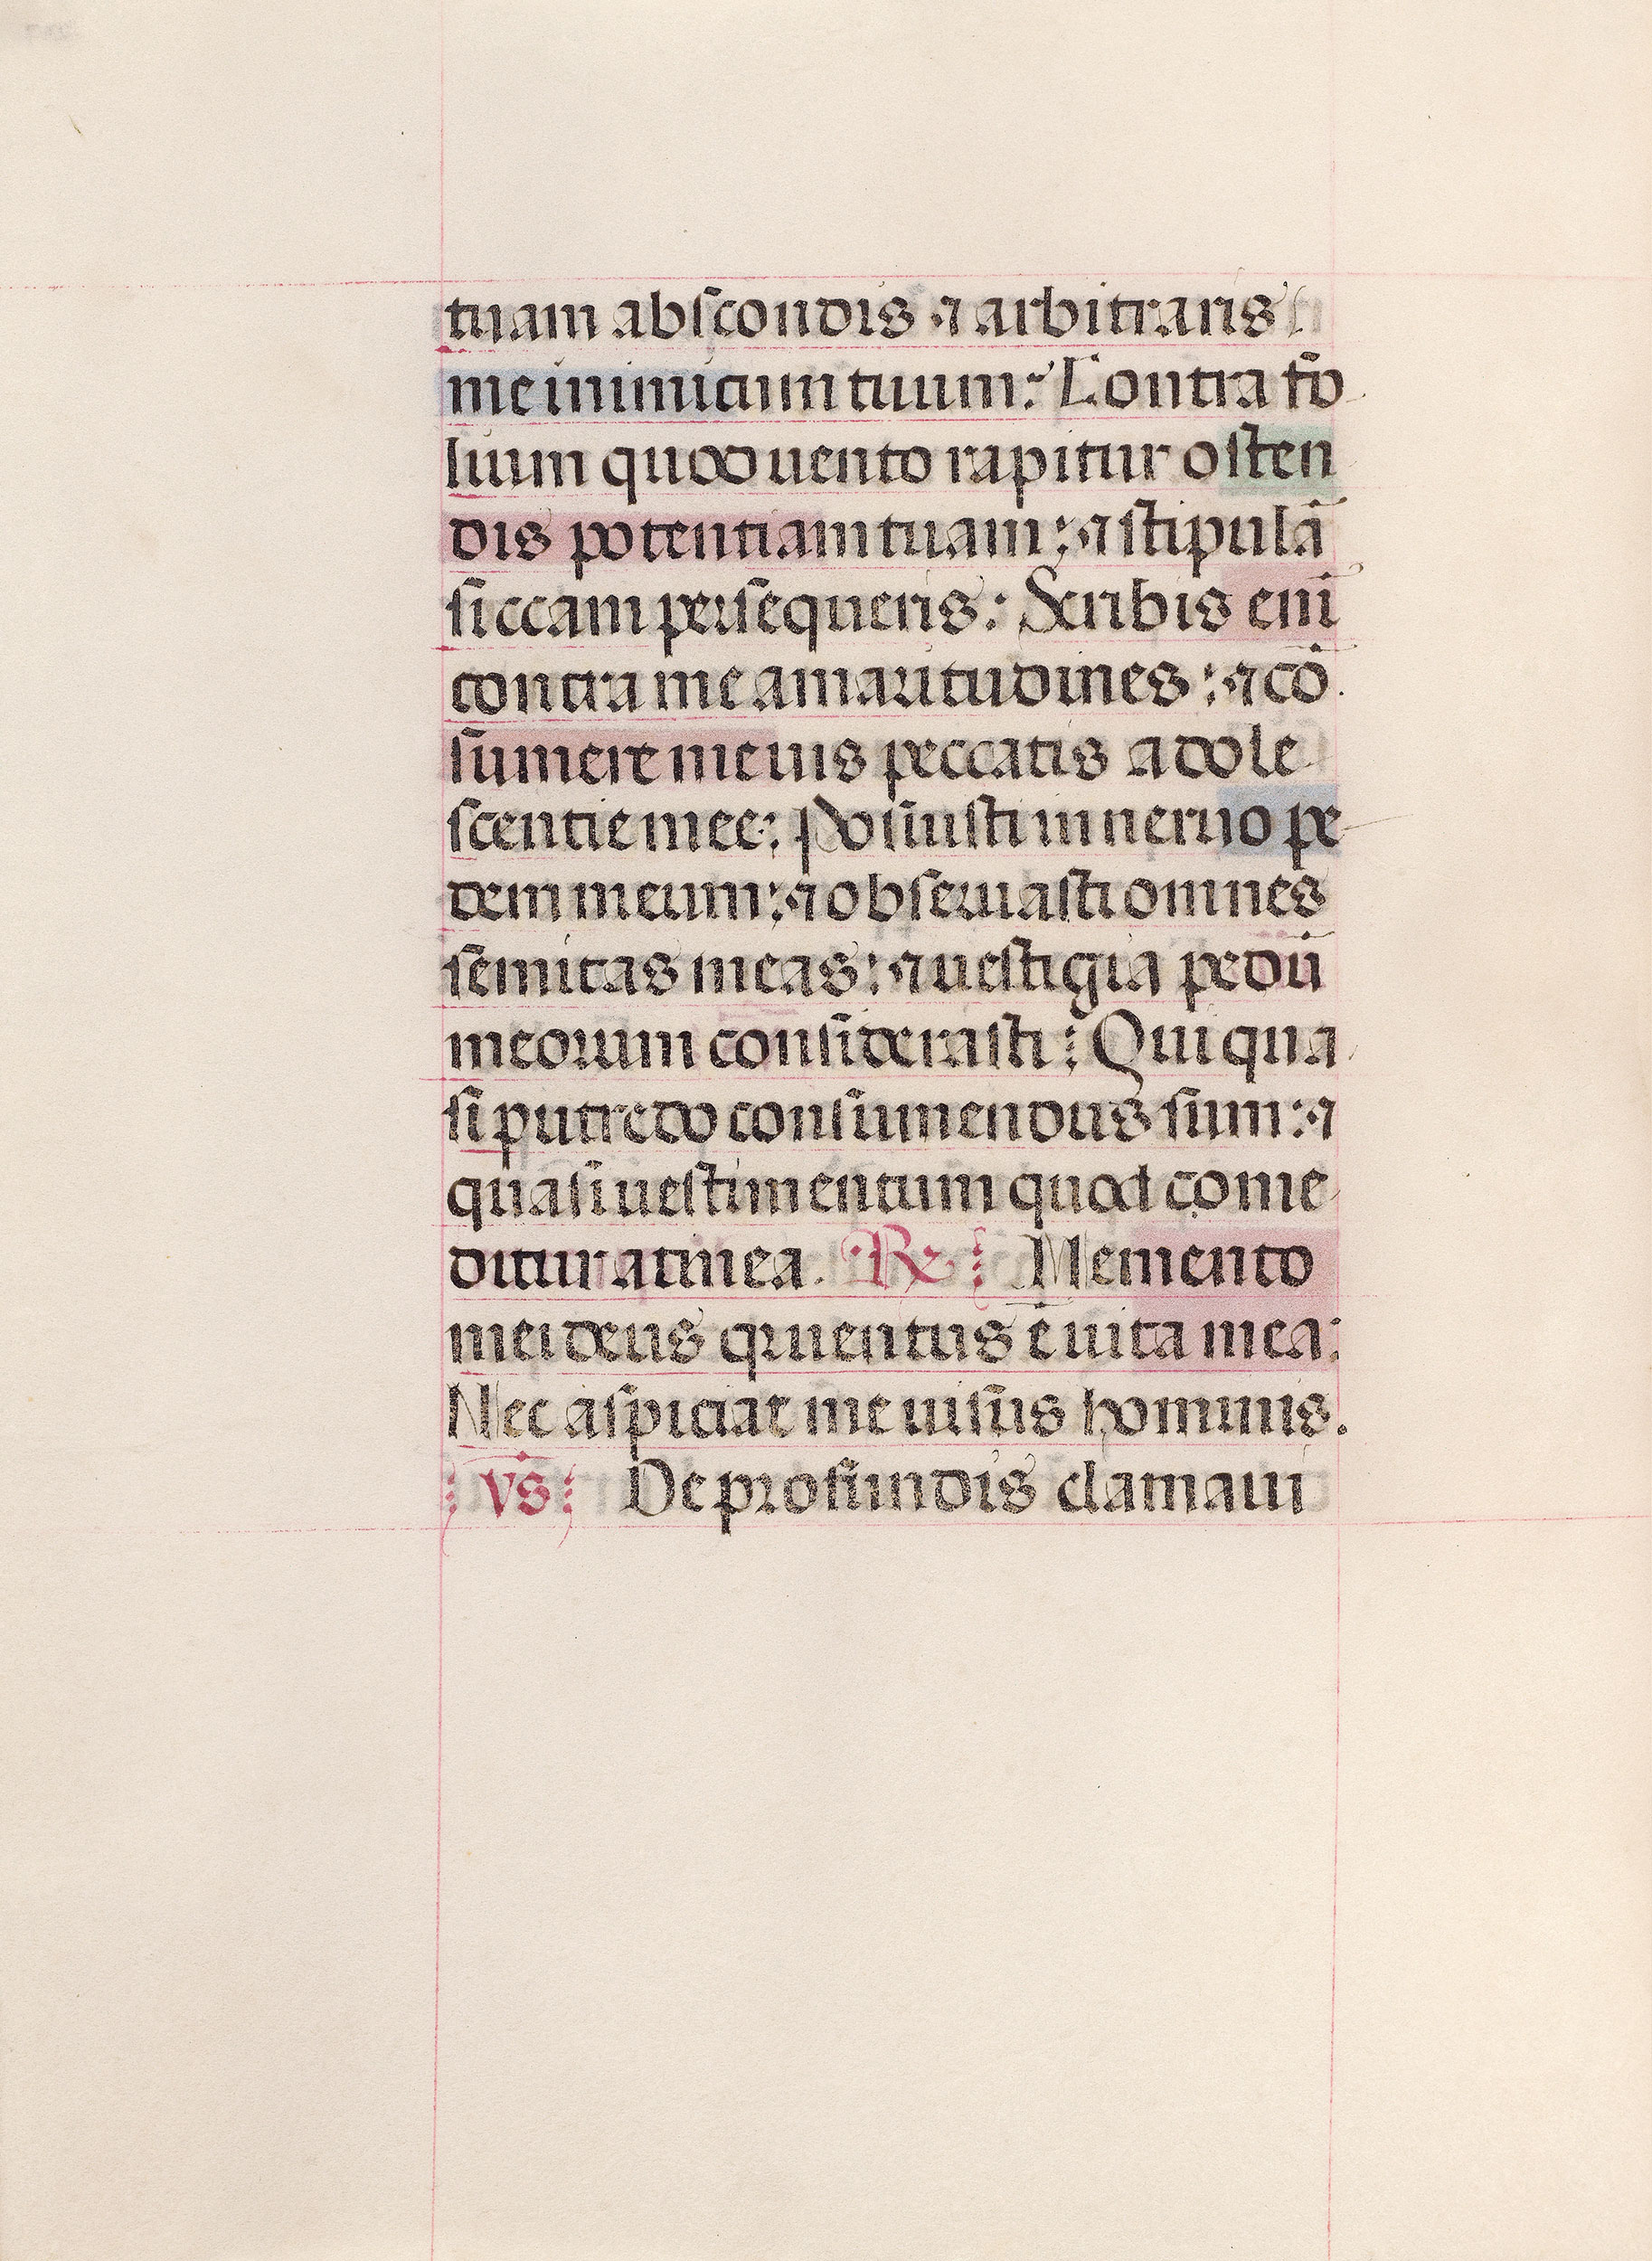 tuam abscondis ⁊ arbitraris
me inimicum tuum: Contra fo
lium quod uento rapitur osten
dis potentiam tuam: ⁊ stipulā
siccam persequeris: Scribis eni̅
contra me amaritudines: ⁊ cō
sumere me uis peccatis adole
scentie mee: Posuisti in neruo pe
dem meum: ⁊ obseruasti omnes
semitas meas: ⁊ uestigia pedū
meorum considerasti: Qui qua
si putredo consumendus sum: ⁊
quasi uestimentum quod come
ditur a tinea. R℣: Memento
mei deus qr uentus ē uita mea:
Nec aspiciat me uisus hominis.
vs: De profundis clamaui